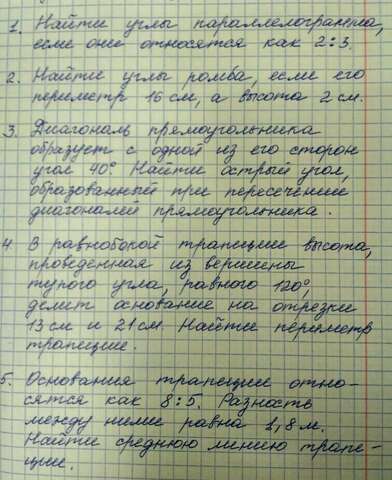 1. Найти углы параллелограмма,
если они относятся как 2:3.
2. Найти углы ромба, если его
периметр 16 см, а высота 2 см.
3. Диагональ прямоугольника
образует с одной из его сторон
угол 40°. Найти острый угол,
образованный при пересечении
диагоналей прямоугольника.
4. В равнобокой трапеции высота,
проведенная из вершины
тупого угла, равного 120°,
делит основание на отрезки
13 см и 21 см. Найти периметр
трапеции.
5. Основания трапеции отно-
сятся как 8:5. Разность
между ними равна 1,8 м.
Найти среднюю линию трапе-
ции.